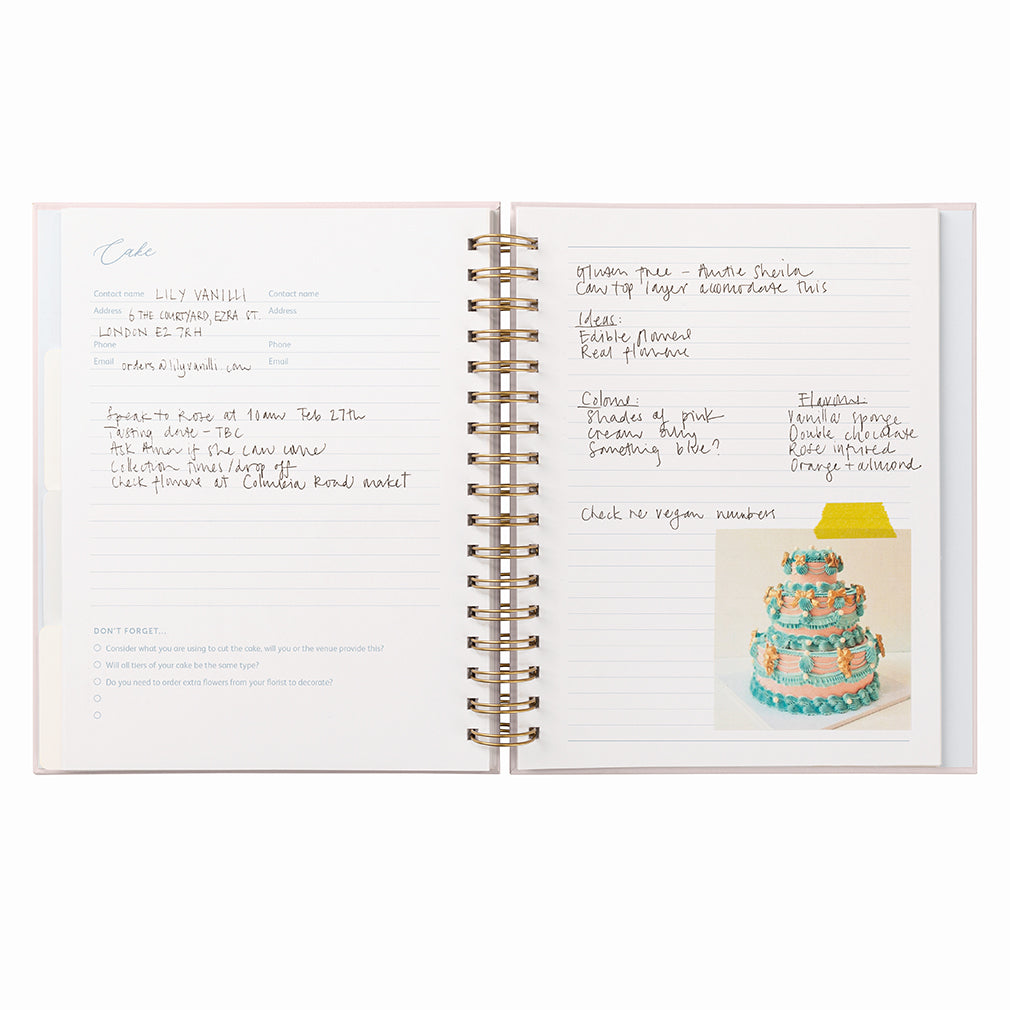 Cake
Contact name LILY VANILLI Contact name
Address 6 THE COURTYARD, EZRA ST. Address
LONDON E2 7RH
Phone Phone
Email orders@lilyvanilli.com Email
Speak to Rose at 10am Feb 27th
Tasting date - TBC
Ask Amor if she can come
Collection times/drop off
Check flowers at Columbia Road market
DON'T FORGET...
Consider what you are using to cut the cake, will you or the venue provide this?
Will all tiers of your cake be the same type?
Do you need to order extra flowers from your florist to decorate?
Gluten free - Auntie Sheila
Can top layer accomodate this
Ideas:
Edible flowers
Real flowers
Colours:
Shades of pink
cream
Something blue?
Flavours:
Vanilla sponge
Double chocolate
Rose infused
Orange + almond
Check re vegan numbers